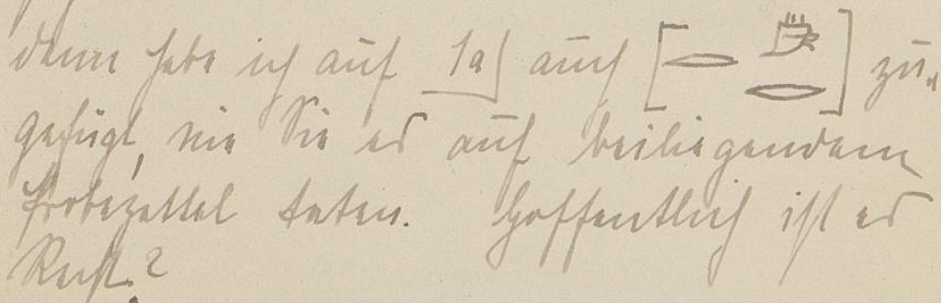 dann habe ich auf 1a) auch [ ] zu-
gefügt, wie Sie es auf beiliegendem
Probezettel taten. Hoffentlich ist es
Recht?